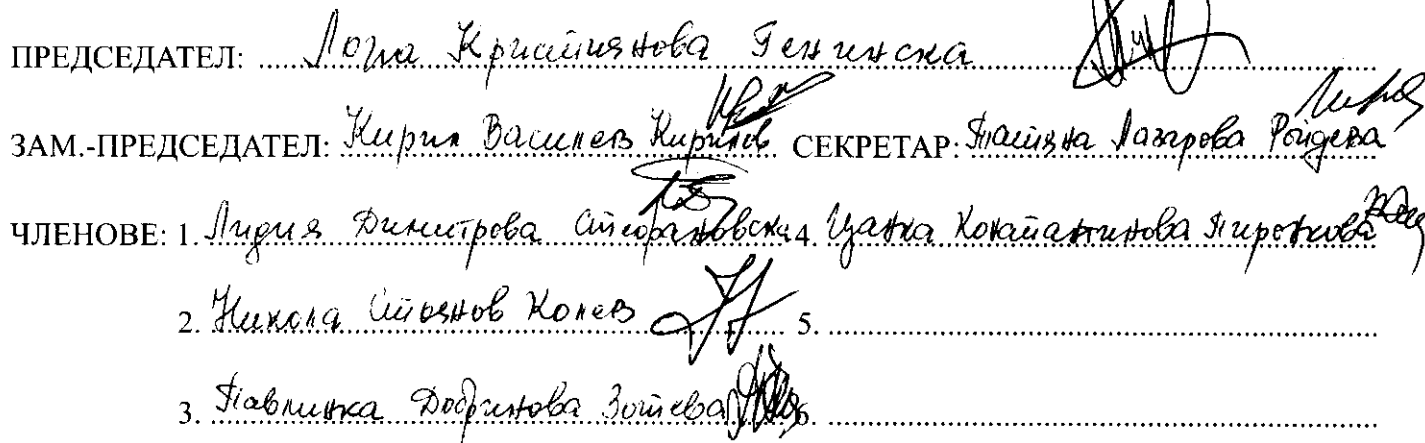 ПРЕДСЕДАТЕЛ: Лора Кристиянова Генчевска
ЗАМ.-ПРЕДСЕДАТЕЛ: Кирил Василев Кирилов СЕКРЕТАР: Татяна Лазарова
ЧЛЕНОВЕ: 1. Лидия Димитрова Стефановска 4. Цанка Константинова Пиронкова
2. Никола Стоянов Колев 5.
3. Павлинка Добринова Зотева 6.